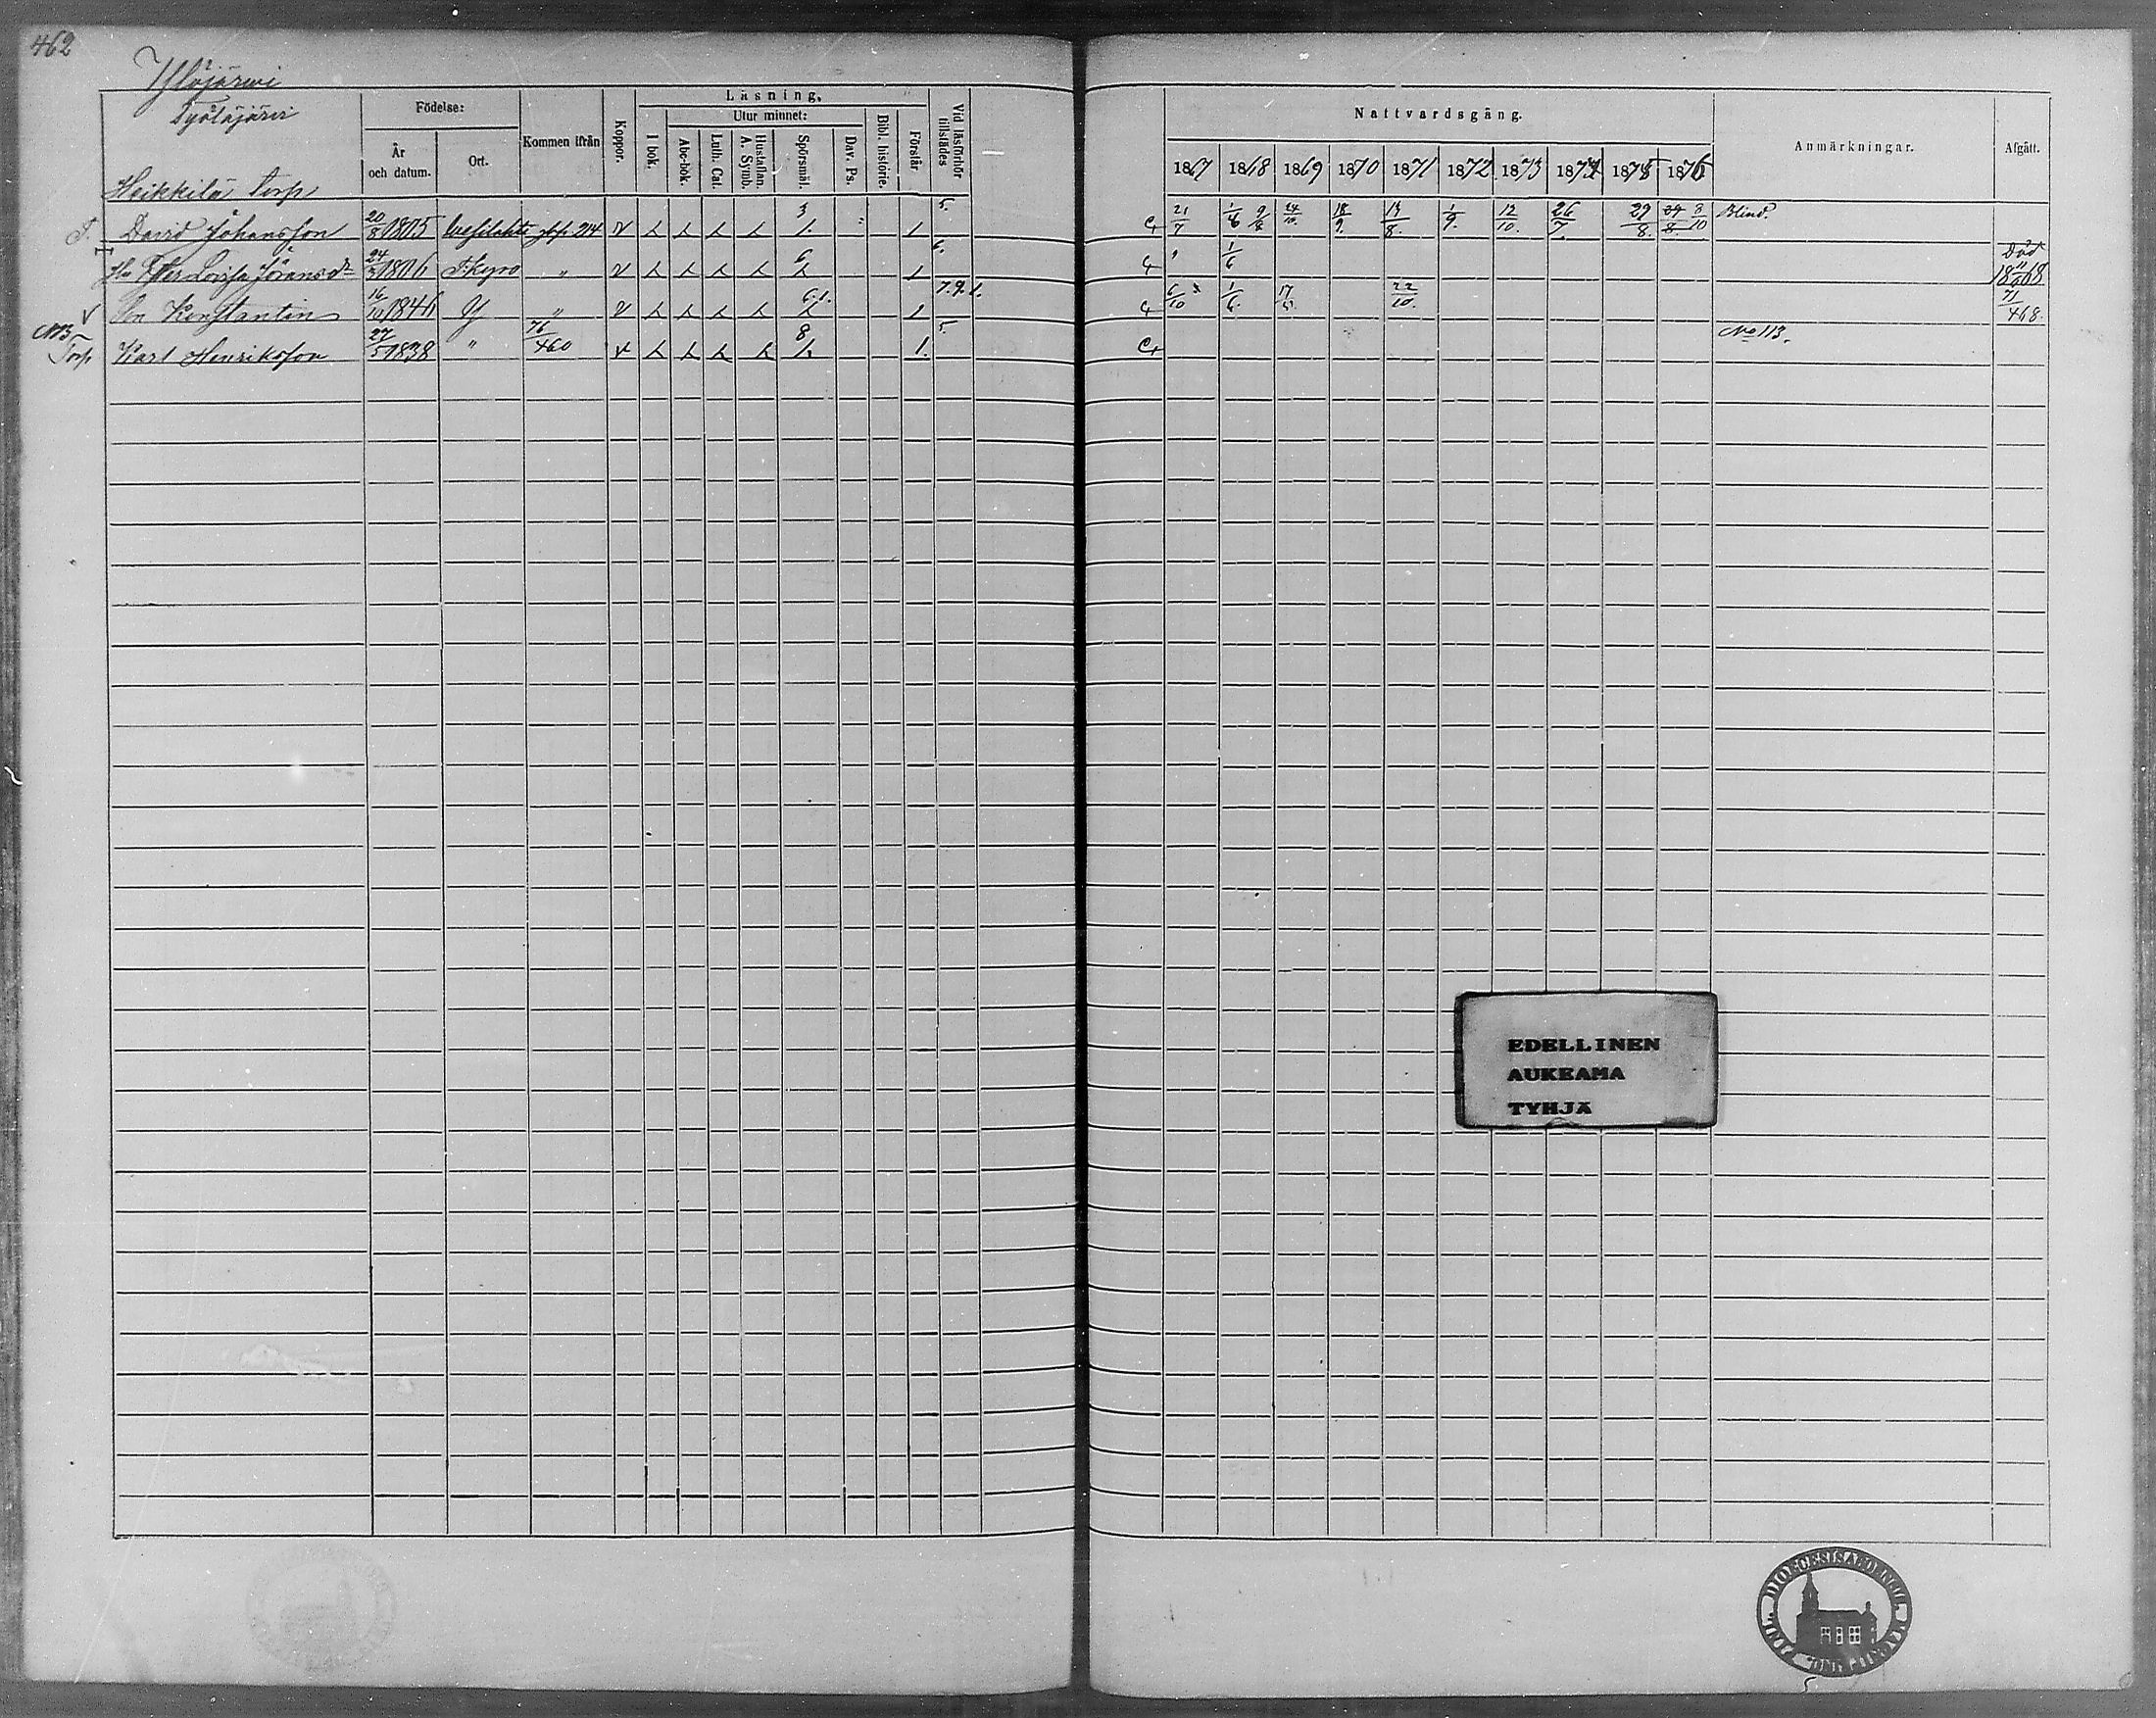 462
Ylöjärwi
Työläjärvi
Heikkilä torp
Födelse:
År och datum.
Ort.
Kommen ifrån
Koppor.
Läsning.
I bok.
Utur minnet:
Abc-bok.
Luth. Cat.
Hustaflan. A. Symb.
Spörsmål.
Dav. Ps.
Bibl. historie.
Förstår
Vid läsförhör tillstädes
Nattvardsgång.
1867 1868 1869 1870 1871 1872 1873 1874 1875 1876
Anmärkningar.
Afgått.
T. David Johansson 20/8 1805 214 3 1. 1 5. 21/7 1/6 24/10. 18/9. 13/8. 1/9. 12/10. 26/7. 29/8. 29/8. 8/10 Blind.
Hu Lovisa Göransdr 24/3 1806 T.kyro " 6 1 6. " 1/6 Död 68
Son Konstantin 16/10 1846 Y " 6.1. 1 7.9.1. 6/10 1/6. 22/10. 71/468.
NB Torp Karl Henriksson 27/5 1838 " 76/460 8 1. 1. 5. No 113.
EDELLINEN
AUKEAMA
TYHJÄ